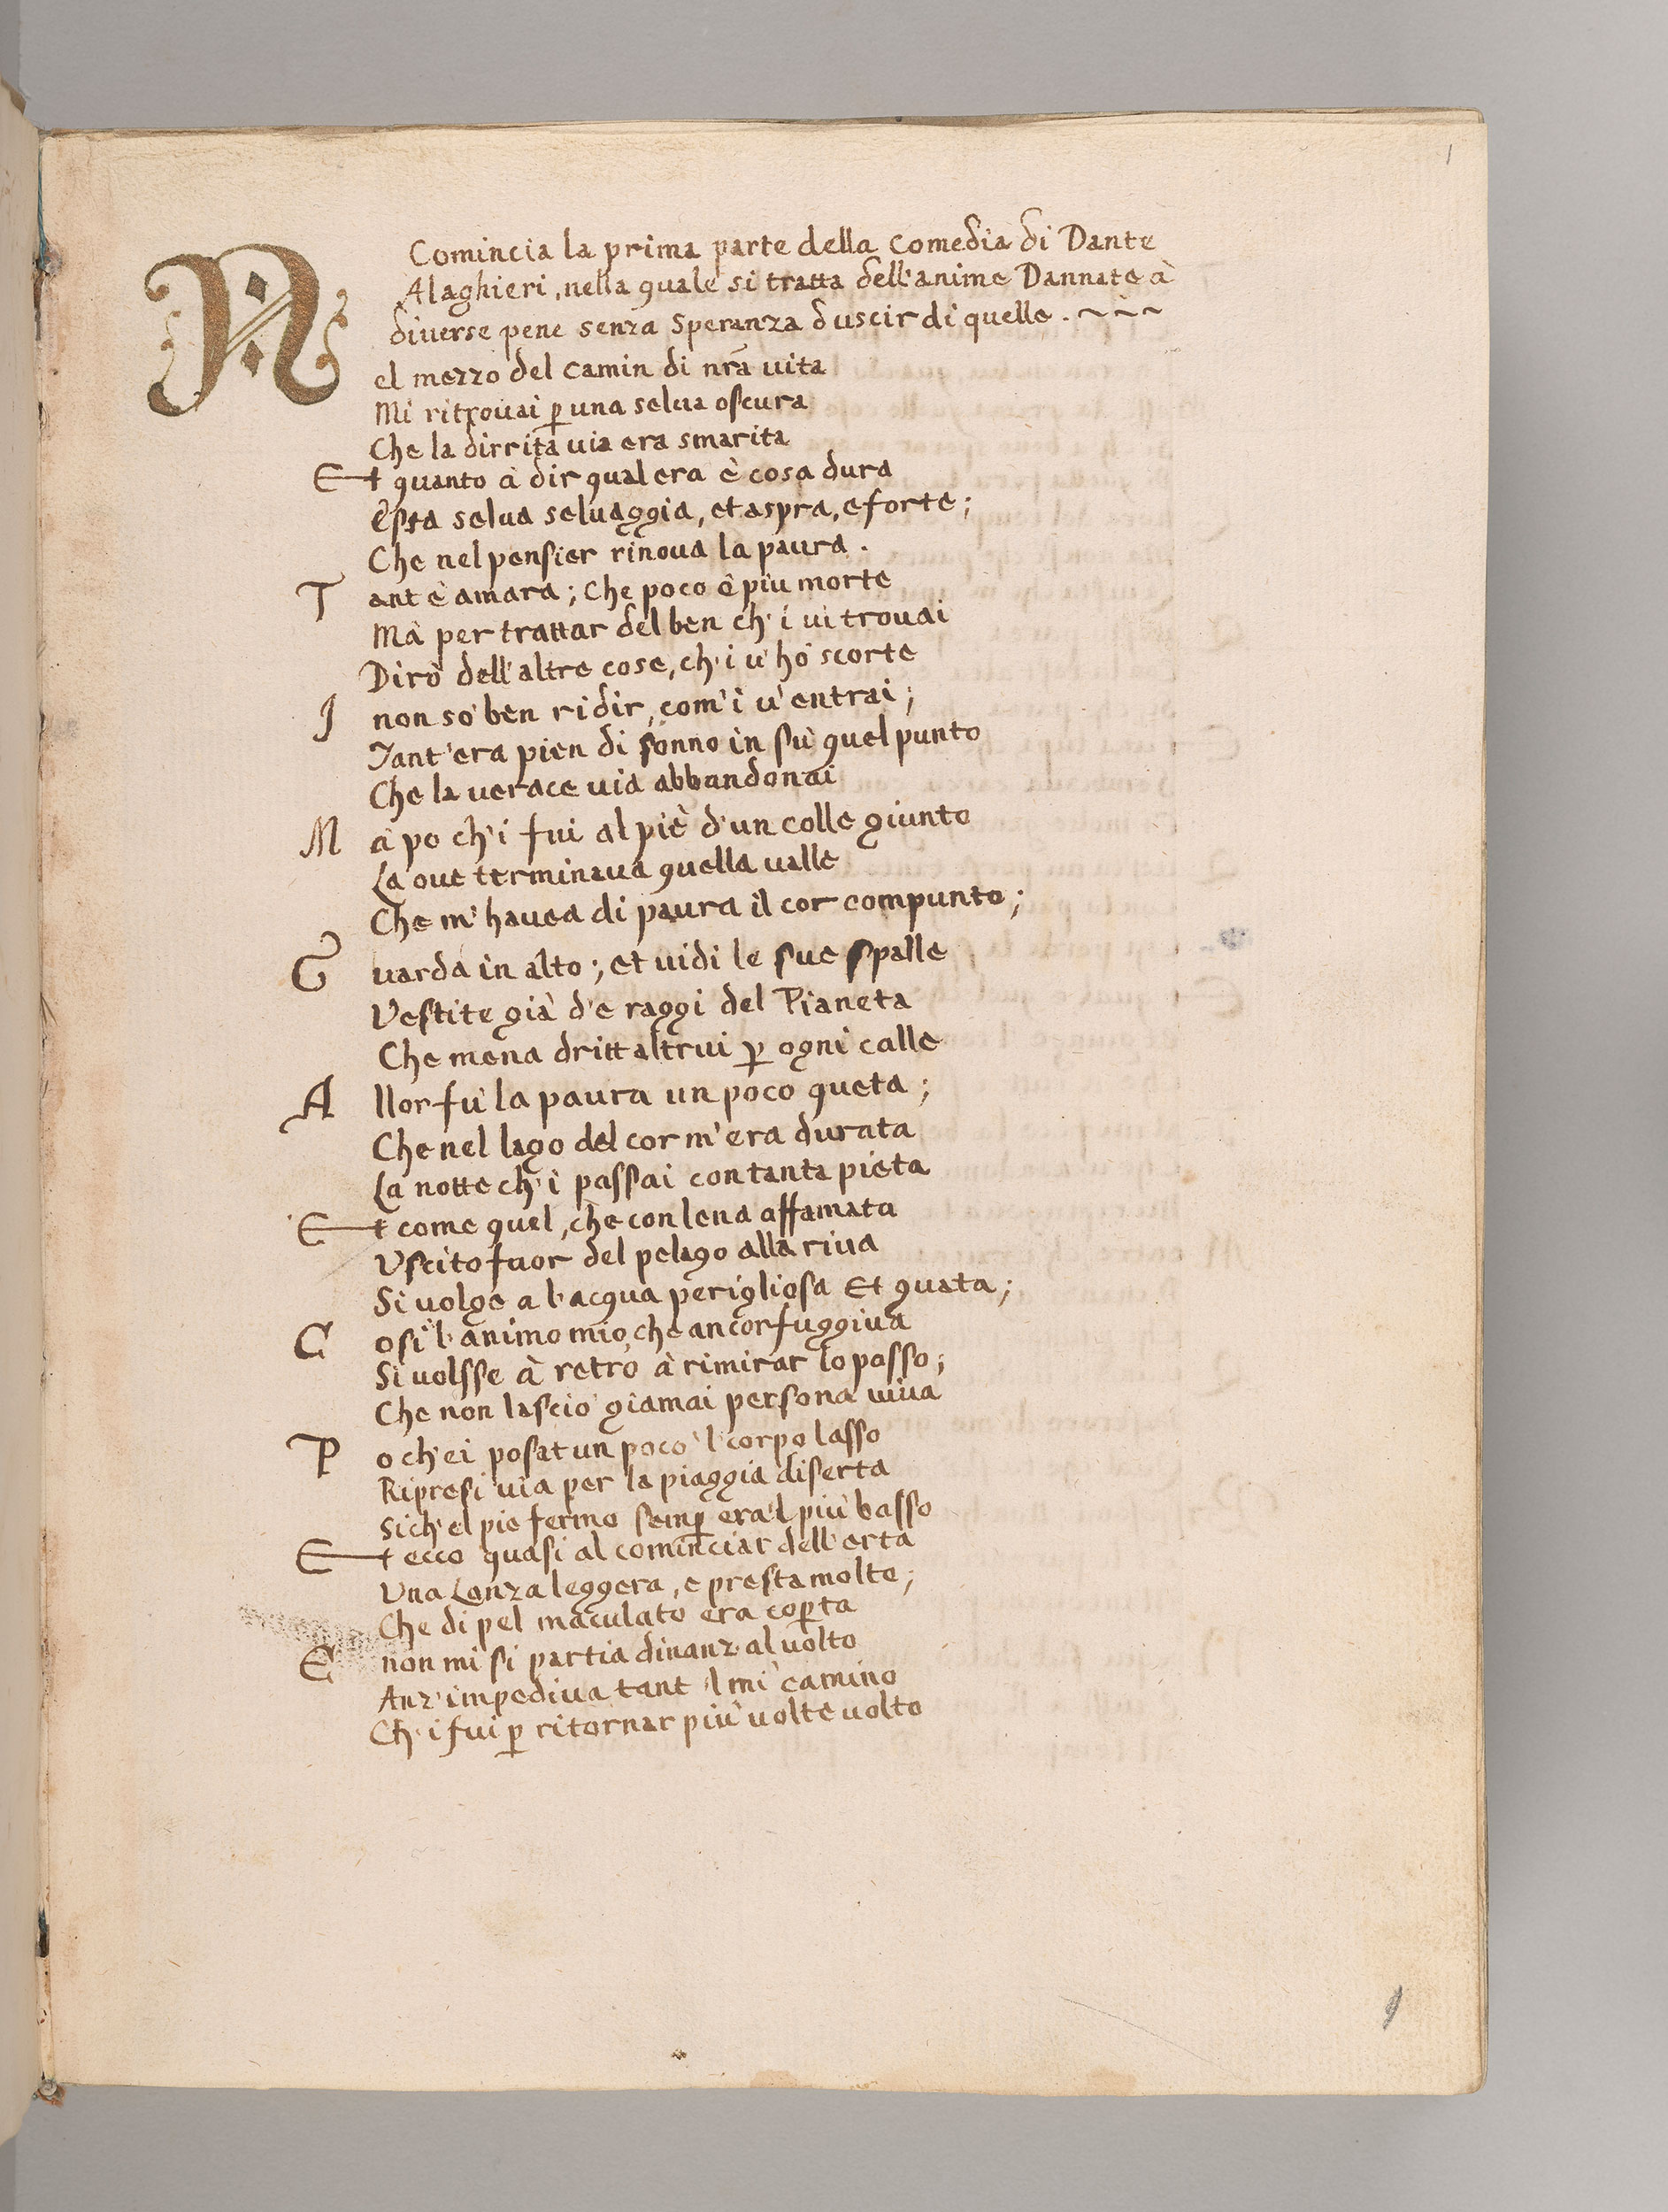 1
Comincia la prima parte della Comedia di Dante
Alaghieri, nella quale si tratta dell'anime Dannate à
diverse pene senza speranza d'uscir di quelle. ~ ~ ~
Nel mezzo del camin di nr̃a uita
Mi ritrouai ꝑ una selua oscura
Che la dirrita uia era smarita
Et quanto à dir qual era è cosa dura
Esta selua seluaggia, et aspra, e forte;
Che nel pensier rinoua la paura.
Tant è amara; che poco è piu morte
Mà per trattar del ben ch'i ui trouai
Dirò dell'altre cose, ch'i u'hò scorte
I non sò ben ridir, com'i u'entrai;
Tant'era pien di sonno in sù quel punto
Che la uerace uia abbandonai
Mà po ch'i fui al piè d'un colle giunto
La oue terminaua quella ualle
Che m'hauea di paura il cor compunto;
Guarda in alto; et uidi le sue spalle
Vestite già d'e raggi del Pianeta
Che mena dritt altrui ꝑ ogni calle
Allor fù la paura un poco queta;
Che nel lago del cor m'era durata
La notte ch'i passai con tanta pieta
Et come quel, che con lena affamata
Vscito fuor del pelago alla riua
Si uolge a l'acqua perigliosa Et guata;
Cosi l'animo mio che ancor fuggiua
Si uolsse à retro à rimirar lo passo;
Che non lasciò giamai persona uiua
Po ch'ei posat un poco 'l corpo lasso
Ripresi uia per la piaggia diserta
Sich'el pie fermo semꝑ era'l più basso
Et ecco quasi al cominciar dell'erta
Vna Lonza leggera, e presta molto;
Che di pel maculato era coꝑta
E non mi si partia dinanz al uolto
Anz'impediua tant 'l mi camino
Ch'i fui ꝑ ritornar più uolte uolto